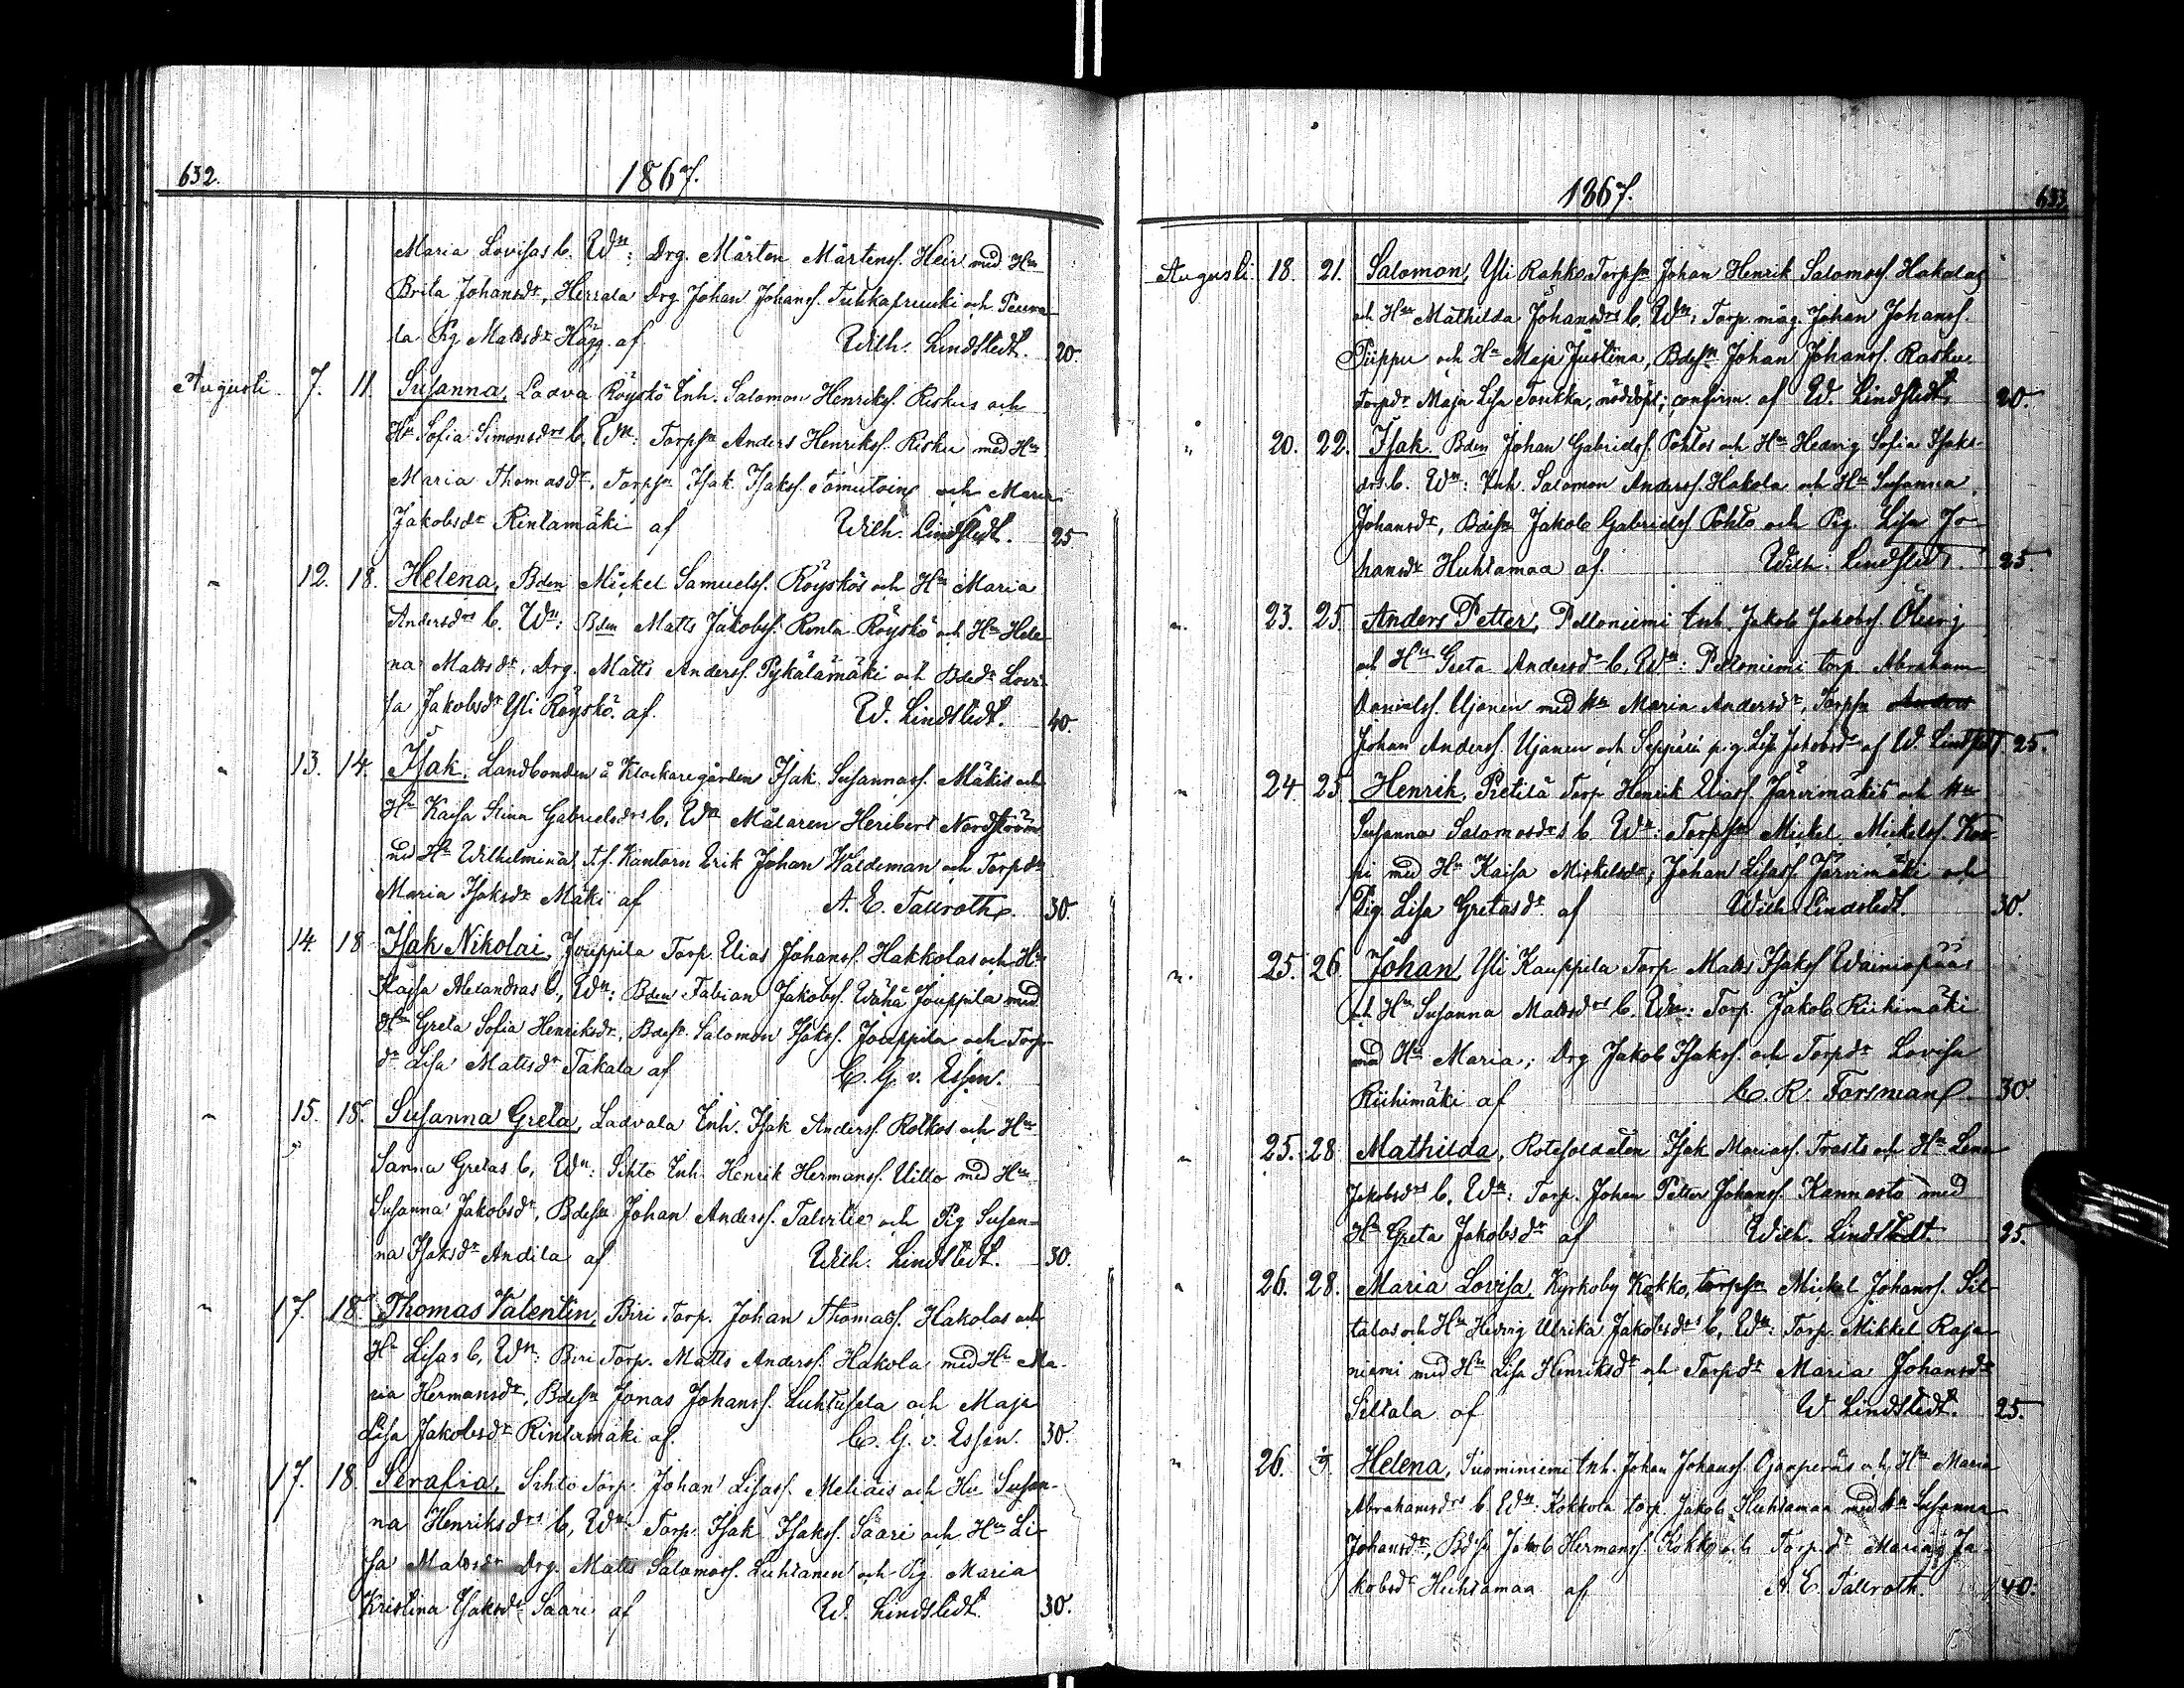 632.
1867.
Maria Lovisas b. Wn: Drg. Mårten Mårtenss. Heir med Hu
Brita Johansdr, Herrala Drg. Johan Johanss. och Peura-
la Pig Mattsdr Hägg af Wilh. Lindstedt. 20.
Augusti 7. 11. Susanna, Ladva Röyskö Inh. Salomon Henrikss. Riskus och
Hu Sofia Simonsdrs b. Wn: Torpsn Anders Henrikss. Risku med Hu
Maria Thomasdr, Torpsn Isak Isakss. och Maria
Jakobsdr Rintamäki af Wilh. Lindstedt. 25
" 12. 18. Helena, Bden Mickel Samuelss. Röyskös och Hu Maria
Andersdrs b. Wn: Bden Matts Jakobss. Rinta Röyskö och Hu Hele-
na Mattsdr, Drg. Matts Anderss. Pykälämäki och Bdedr Lovi-
sa Jakobsdr Yli Röyskö af W. Lindstedt. 40.
" 13. 14. Isak, Landbonden å Klockaregården Isak Susannass. Mäkis och
Hu Kaisa Stina Gabrielsdrs b. Wn Målaren Heribert Nordström
med Hu Wilhelmina, t.f. Kantorn Erik Johan Waldeman och Torpdr
Maria Isaksdr Mäki af A. E. Tallroth. 30.
14. 18 Isak Nikolai, Jouppila Torp. Elias Johanss. Hakkolas och Hu
Kaisa Alexandras b., Wn: Bden Fabian Jakobss. Wähä Jouppila med
Hu Greta Sofia Henriksdr, Bdesn Salomon Isakss. Jouppila och Torp-
dr Lisa Mattsdr Takala af C. G. v. Essen.
" 15. 18. Susanna Greta, Ladvala Inh. Isak Anderss. Rötkös och Hu
Sanna Gretas b, Wn: Sihto Inh. Henrik Hermanss. Uitto med Hu
Susanna Jakobsdr, Bdesn Johan Anderss. Talvitie och Pig Susan-
na Isaksdr Andila af Wilh. Lindstedt. 30.
" 17. 18. Thomas Valentin, Biri Torp. Johan Thomass. Hakolas och
Hu Lisas b, Wn: Biri Torp. Matts Anderss. Hakola med Hu Ma-
ria Hermansdr, Bdesn Jonas Johanss. och Maja
Lisa Jakobsdr Rintamäki af C. G. v. Essen. 30.
" 17. 18. Serafia, Sihto Torp. Johan Lisass. och Hu Susan-
na Henriksdrs b, Wn: Torp. Isak Isakss. Saari och Hu Li-
sa Mattsdr Drg. Matts Salomoss. Luhtanen och Pig. Maria
Kristina Isaksdr Saari af W. Lindstedt. 30.
1867.
633.
Augusti 18. 21. Salomon, Yli Rahko Torpsn Johan Henrik Salomoss. Hakolas
och Hu Mathilda Johansdrs b. Wn: Torp. måg. Johan Johanss.
Piippu och Hu Maja Justina, Bdesn Johan Johanss. Rasku
Torpdr Maja Lisa, nöddöpt; confirm. af W. Lindstedt 20.
" 20. 22. Isak. Bden Johan Gabrielss. Pohtos och Hu Hedvig Sofia Isaks-
drs b. Wn: Inh. Salomon Anderss. Hakola och Hu Susanna
Johansdr, Bdesn Jakob Gabrielss Pohto och Pig. Lisa Jo-
hansdr Huhtamaa af Wilh. Lindstedt. 25.
" 23. 25. Anders Petter, Peltoniemi Inh. Jakob Jakobss Öberg
och Hu Greta Andersdr b. Wn: Peltoniemi torp. Abraham
Danielss. Ujanen med Hu Maria Andersdr, Torpsn Anders
Johan Anderss. Ujanen och pig. Lisa Jakobsdr af W. Lindstedt 25.
" 24. 25 Henrik, Pietilä Torp Henrik Eliass Järvimäkis och Hu
Susanna Salomosdrs b. Wn: Torpsn Mickel Mickelss. Kor-
pi med Hu Kaisa Mickelsdr, Johan Lisass. Järvimäki och
Pig. Lisa Gretasdr af Wilh. Lindstedt. 30.
" 25. 26. Johan, Yli Kauppila Torp. Matts Isakss Wainiopääs
och Hu Susanna Mattsdrs b. Wn: Torp. Jakob Riihimäki
med Hu Maria; Drg Jakob Isakss. och Torpdr Lovisa
Riihimäki af C. R. Forsman. 30.
" 25. 28 Mathilda, Rotesoldaten Isak Mariass. Trasts och Hu Lena
Jakobsdrs b, Wn: Torp. Johan Petter Johanss. Kannasto med
Hu Greta Jakobsdr af Wilh. Lindstedt 25.
" 26. 28. Maria Lovisa, Kyrkoby Kokko, torpsn Mickel Johanss. Sil-
talas och Hu Hedvig Ulrika Jakobsdrs b, Wn: Torp. Mikkel Raja-
niemi med Hu Lisa Henriksdr och Torpdr Maria Johansdr
Siltala af W Lindstedt. 25.
" 26. Helena, Tuominiemi Inh. Johan Johanss. Ojanperäs och Hu Maria
Abrahamsdrs b. Wn: Kokkola torp. Jakob Huhtamaa med Hu Susanna
Johansdr, Bdesn Jakob Hermanss. Kokko och Torp.dr Maria Ja-
kobsdr Huhtamaa af A. E. Tallroth. 40.